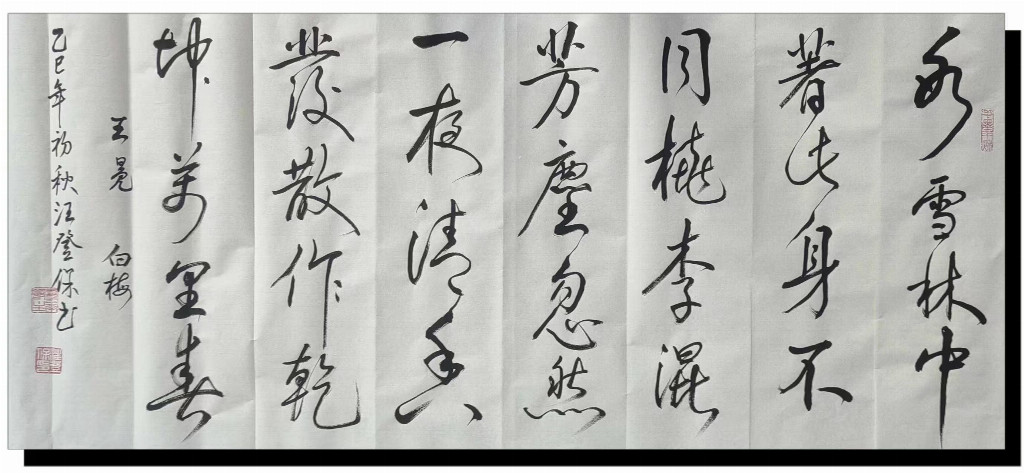 冰雪林中
著此身不
同桃李混
芳塵忽然
一夜清香
發散作乾
坤萬里春
王冕 白梅
乙巳年初秋汪登保书